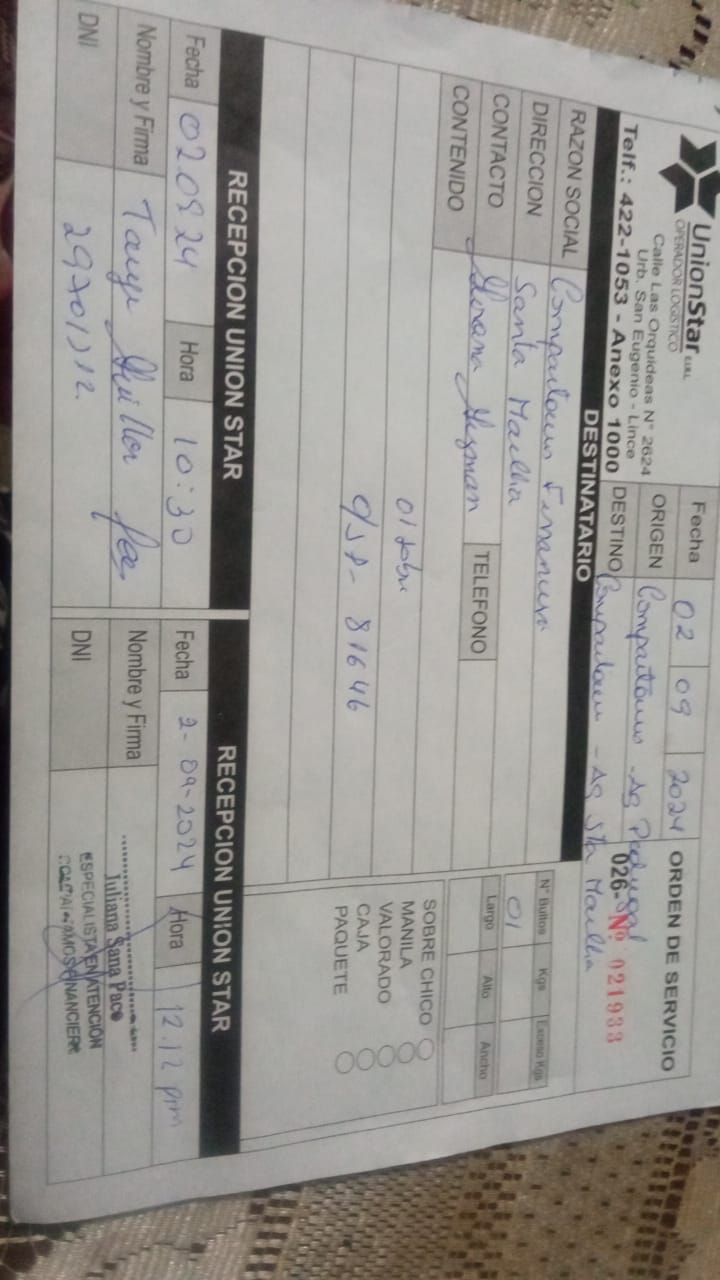 UnionStar E.I.R.L.
OPERADOR LOGISTICO
Calle Las Orquideas N° 2624
Urb. San Eugenio - Lince
Telf.: 422-1053 - Anexo 1000
Fecha 02 09 2024
ORIGEN Compartamos - Ag
DESTINO - Ag Sta Martha
ORDEN DE SERVICIO
026- Nº 021933
DESTINATARIO
RAZON SOCIAL Compartamos Financiera
DIRECCION Santa Martha
CONTACTO Guzman TELEFONO
CONTENIDO
01 sobre
81646
N° Bultos Kgs Exceso Kgs
01
Largo Alto Ancho
SOBRE CHICO
MANILA
VALORADO
CAJA
PAQUETE
RECEPCION UNION STAR
Fecha 02 09 24 Hora 10:30
Nombre y Firma
DNI
RECEPCION UNION STAR
Fecha 2-09-2024 Hora 12.12 pm
Nombre y Firma
Juliana Sana Paco
DNI
ESPECIALISTA EN ATENCIÓN
COMPARTAMOS FINANCIERA